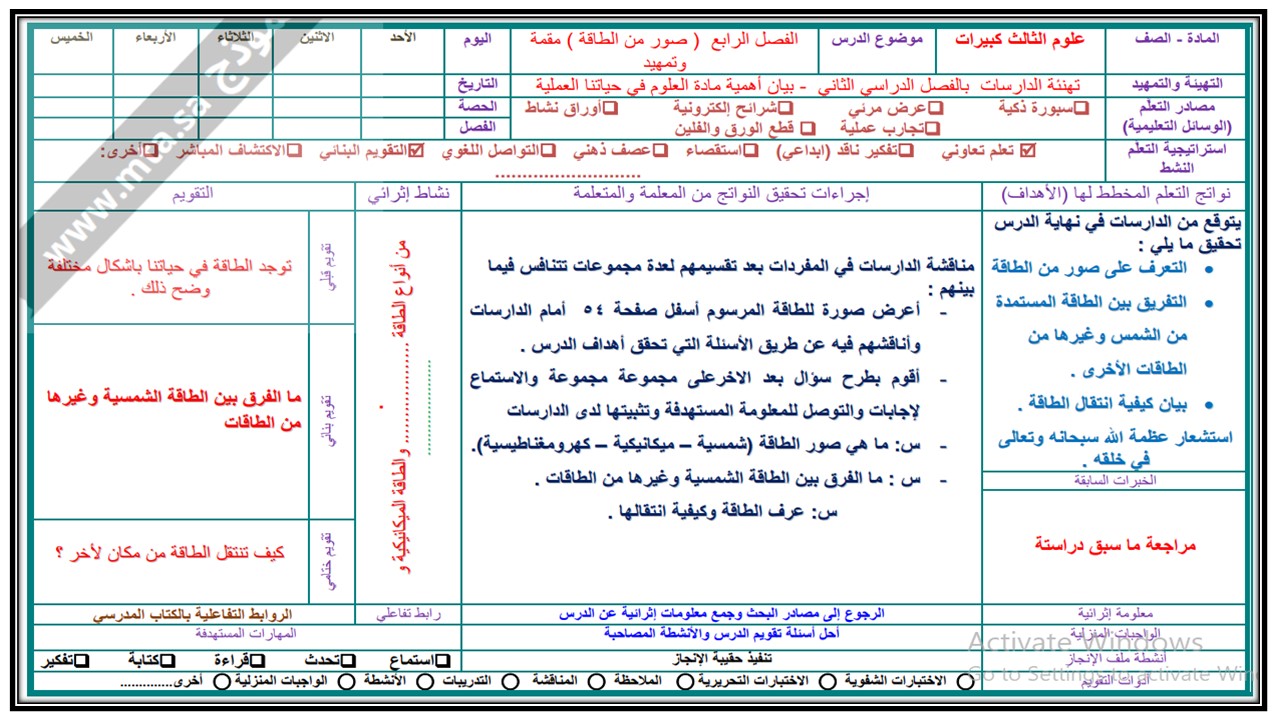 المادة - الصف
علوم الثالث كبيرات
موضوع الدرس
الفصل الرابع ( صور من الطاقة ) مقمة
وتمهيد
اليوم
الأحد
الاثنين
الثلاثاء
الأربعاء
الخميس
التهيئة والتمهيد
تهنئة الدارسات بالفصل الدراسي الثاني - بيان أهمية مادة العلوم في حياتنا العملية
التاريخ
مصادر التعلم
(الوسائل التعليمية)
سبورة ذكية
عرض مرئي
شرائح إلكترونية
أوراق نشاط
تجارب عملية
قطع الورق والفلين
الحصة
الفصل
استراتيجية التعلم
النشط
تعلم تعاوني
تفكير ناقد (ابداعي)
استقصاء
عصف ذهني
التواصل اللغوي
التقويم البنائي
الاكتشاف المباشر
أخرى:
............................
نواتج التعلم المخطط لها (الأهداف)
إجراءات تحقيق النواتج من المعلمة والمتعلمة
نشاط إثرائي
التقويم
يتوقع من الدارسات في نهاية الدرس
تحقيق ما يلي :
• التعرف على صور من الطاقة
• التفريق بين الطاقة المستمدة
من الشمس وغيرها من
الطاقات الأخرى .
• بيان كيفية انتقال الطاقة .
استشعار عظمة الله سبحانه وتعالى
في خلقه .
الخبرات السابقة
مراجعة ما سبق دراستة
مناقشة الدارسات في المفردات بعد تقسيمهم لعدة مجموعات تتنافس فيما
بينهم :
- أعرض صورة للطاقة المرسوم أسفل صفحة ٥٤ أمام الدارسات
وأناقشهم فيه عن طريق الأسئلة التي تحقق أهداف الدرس .
- أقوم بطرح سؤال بعد الاخرعلى مجموعة مجموعة والاستماع
لإجابات والتوصل للمعلومة المستهدفة وتثبيتها لدى الدارسات
- س: ما هي صور الطاقة (شمسية – ميكانيكية – كهرومغناطيسية).
- س : ما الفرق بين الطاقة الشمسية وغيرها من الطاقات .
س: عرف الطاقة وكيفية انتقالها .
من أنواع الطاقة .................... والطاقة الميكانيكية و
.................... .
تقويم قبلي
توجد الطاقة في حياتنا باشكال مختلفة
وضح ذلك .
تقويم بنائي
ما الفرق بين الطاقة الشمسية وغيرها
من الطاقات
تقويم ختامي
كيف تنتقل الطاقة من مكان لأخر ؟
معلومة إثرائية
الرجوع إلى مصادر البحث وجمع معلومات إثرائية عن الدرس
رابط تفاعلي
الروابط التفاعلية بالكتاب المدرسي
الواجبات المنزلية
أحل أسئلة تقويم الدرس والأنشطة المصاحبة
المهارات المستهدفة
أنشطة ملف الإنجاز
تنفيذ حقيبة الإنجاز
استماع
تحدث
قراءة
كتابة
تفكير
أدوات التقويم
الاختبارات الشفوية
الاختبارات التحريرية
الملاحظة
المناقشة
التدريبات
الأنشطة
الواجبات المنزلية
أخرى..............
نموذج
www.mta.sa
Activate Windows
Go to Settings to activate Win